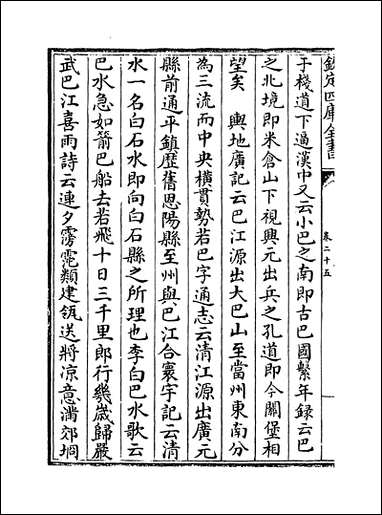 欽定四庫全書
卷二十五
于棧道下逼漢中又云小巴之南即古巴國繫年録云巴
之北境即米倉山下視興元出兵之孔道即今關堡相
望矣　輿地廣記云巴江源出大巴山至當州東南分
為三流而中央橫貫勢若巴字通志云清江源出廣元
縣前通平鎮歷舊思陽縣至州與巴江合寰宇記云清
水一名白石水即向白石縣之所理也李白巴水歌云
巴水急如箭巴船去若飛十日三千里郎行幾歲歸嚴
武巴江喜雨詩云連夕霶霓類建瓴送將涼意滿郊坰